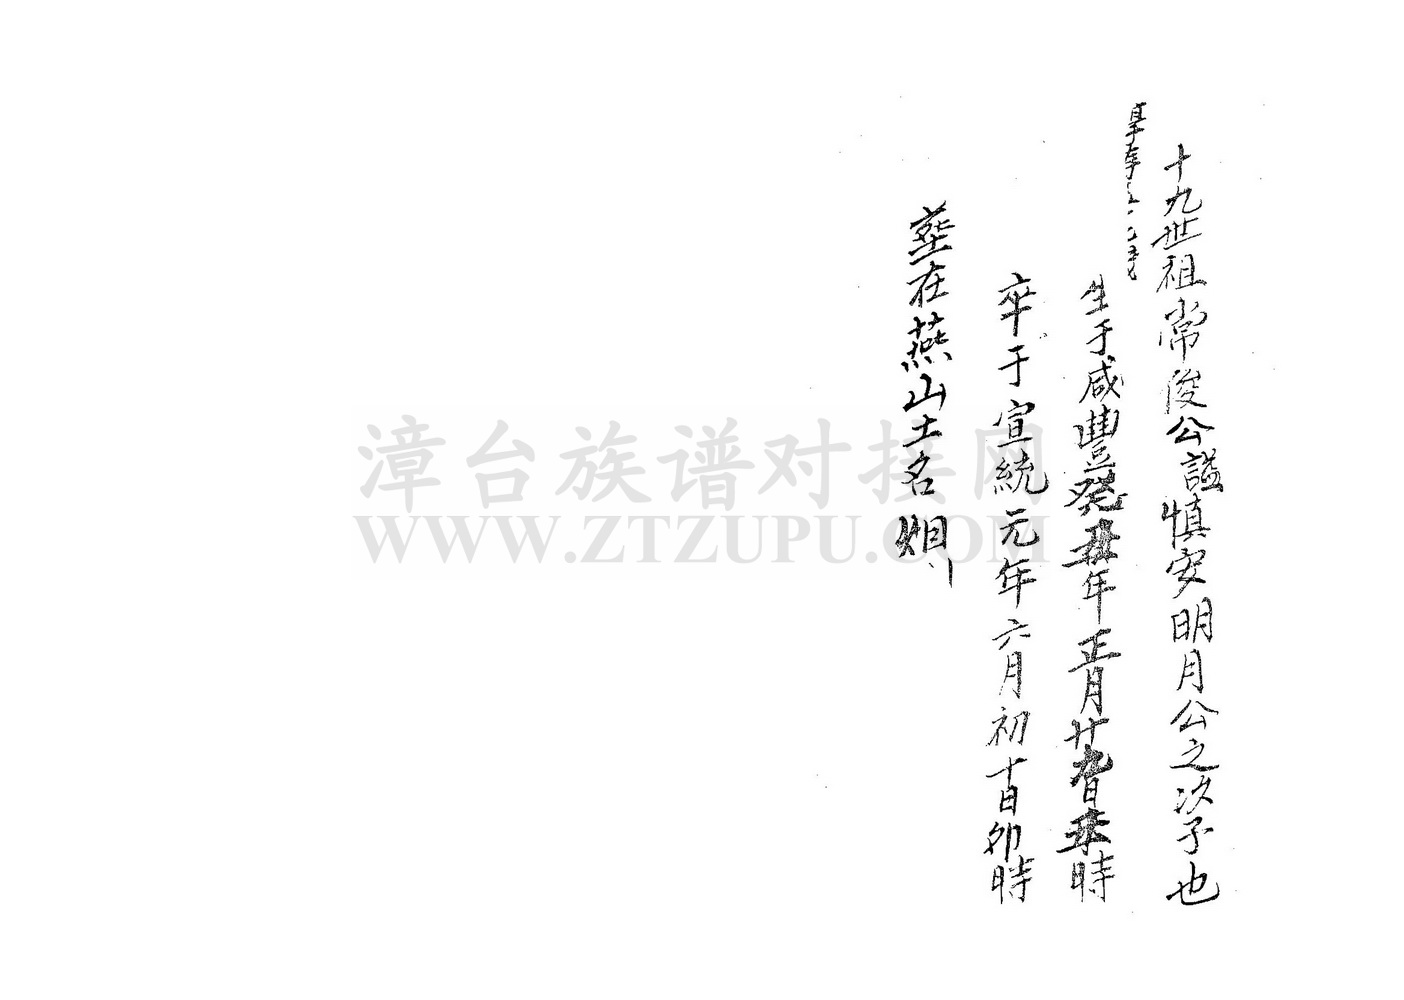 十九世祖常俊公諡慎安明月公之次子也
享年五十七歲
生于咸豐癸丑年正月廿九日未時
卒于宣統元年六月初十日卯時
塟在燕山土名烟
漳台族谱对接网
WWW.ZTZUPU.COM